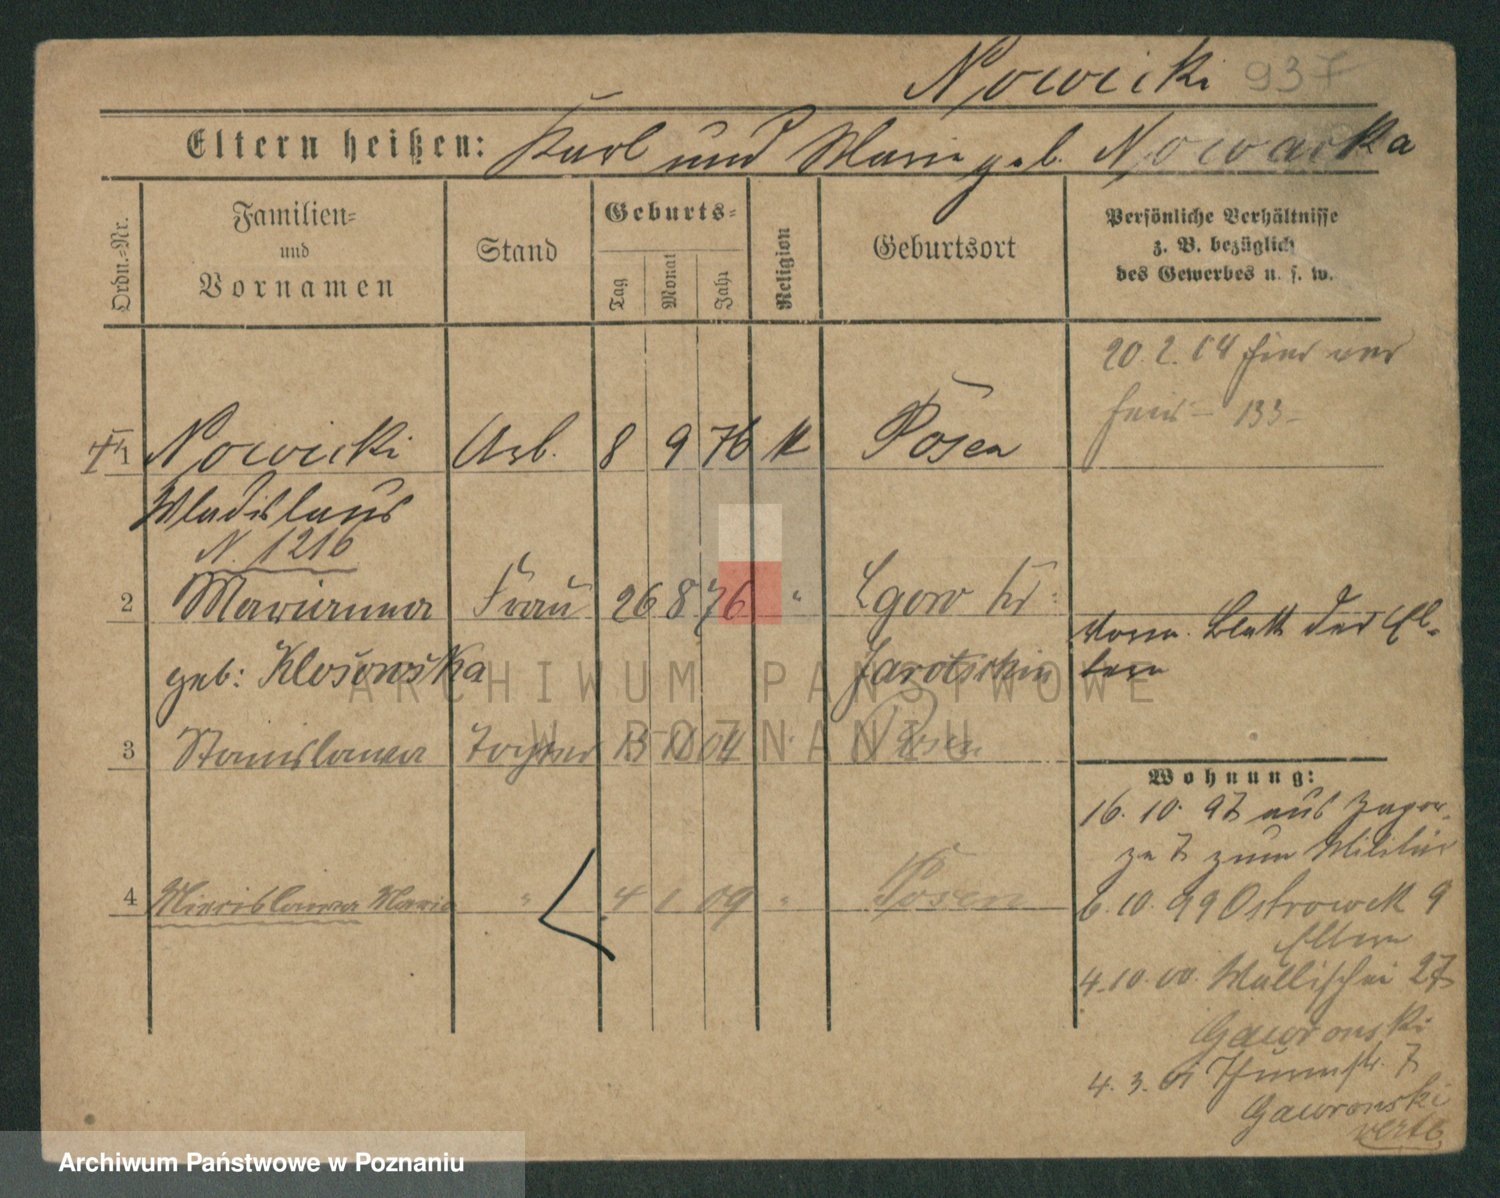 Nowicki 937
Eltern heißen: Karl und Marie geb. Nowacka
Ordn.-Nr.
Familien-
und
Vornamen
Stand
Geburts-
Tag
Monat
Jahr
Religion
Geburtsort
Persönliche Verhältnisse
z. B. bezüglich
des Gewerbes u. s. w.
20. 2. 04
133
1 Nowicki Arb. 8 9 76 K Posen
Wladislaus
N. 1216
2 Marianna Frau 26 8 76 " Lgow Kr:
geb: Klosowska Jarotschin
vorm. Blatt der El-
tern
3 Stanislawa Tochter 13 11 04 " Posen
Wohnung:
16. 10. 97 aus Zagor-
ze 7 zum Militär
4 Mieczislawa Maria " 4 1 09 " Posen
6. 10. 99 Ostrowek 9
Eltern
4. 10. 00. Wallischei 27
Gawronski
4. 3. 01 Thurmstr. 7
Gawronski
verte
ARCHIWUM PAŃSTWOWE
W POZNANIU
Archiwum Państwowe w Poznaniu